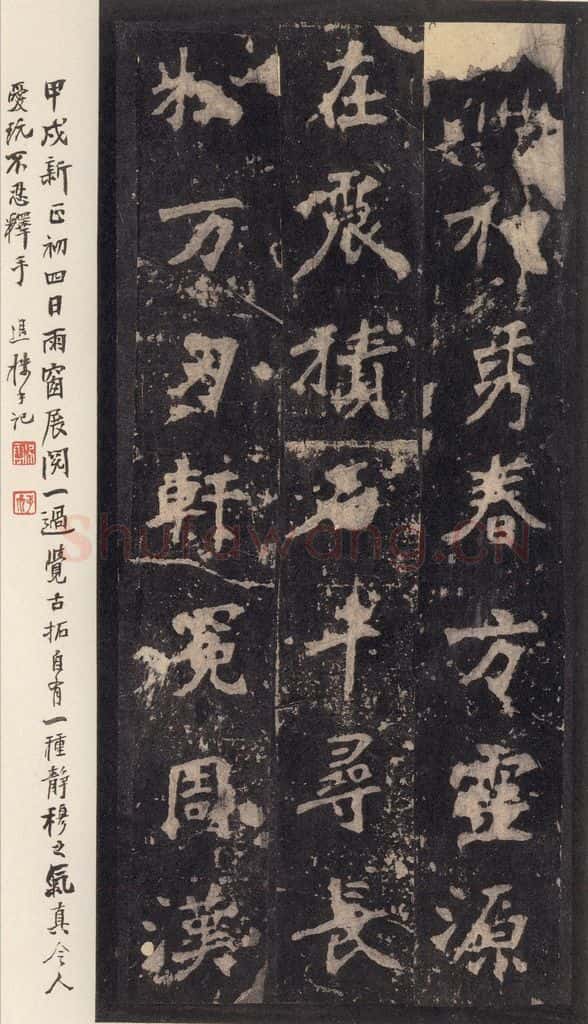 神秀春方靈源
在震積石千尋長
松万刃軒冕周漢
甲戌新正初四日雨窗展閱一過覺古拓自有一種靜穆之氣真令人
愛玩不忍釋手 退樓記
Shufawang.CN